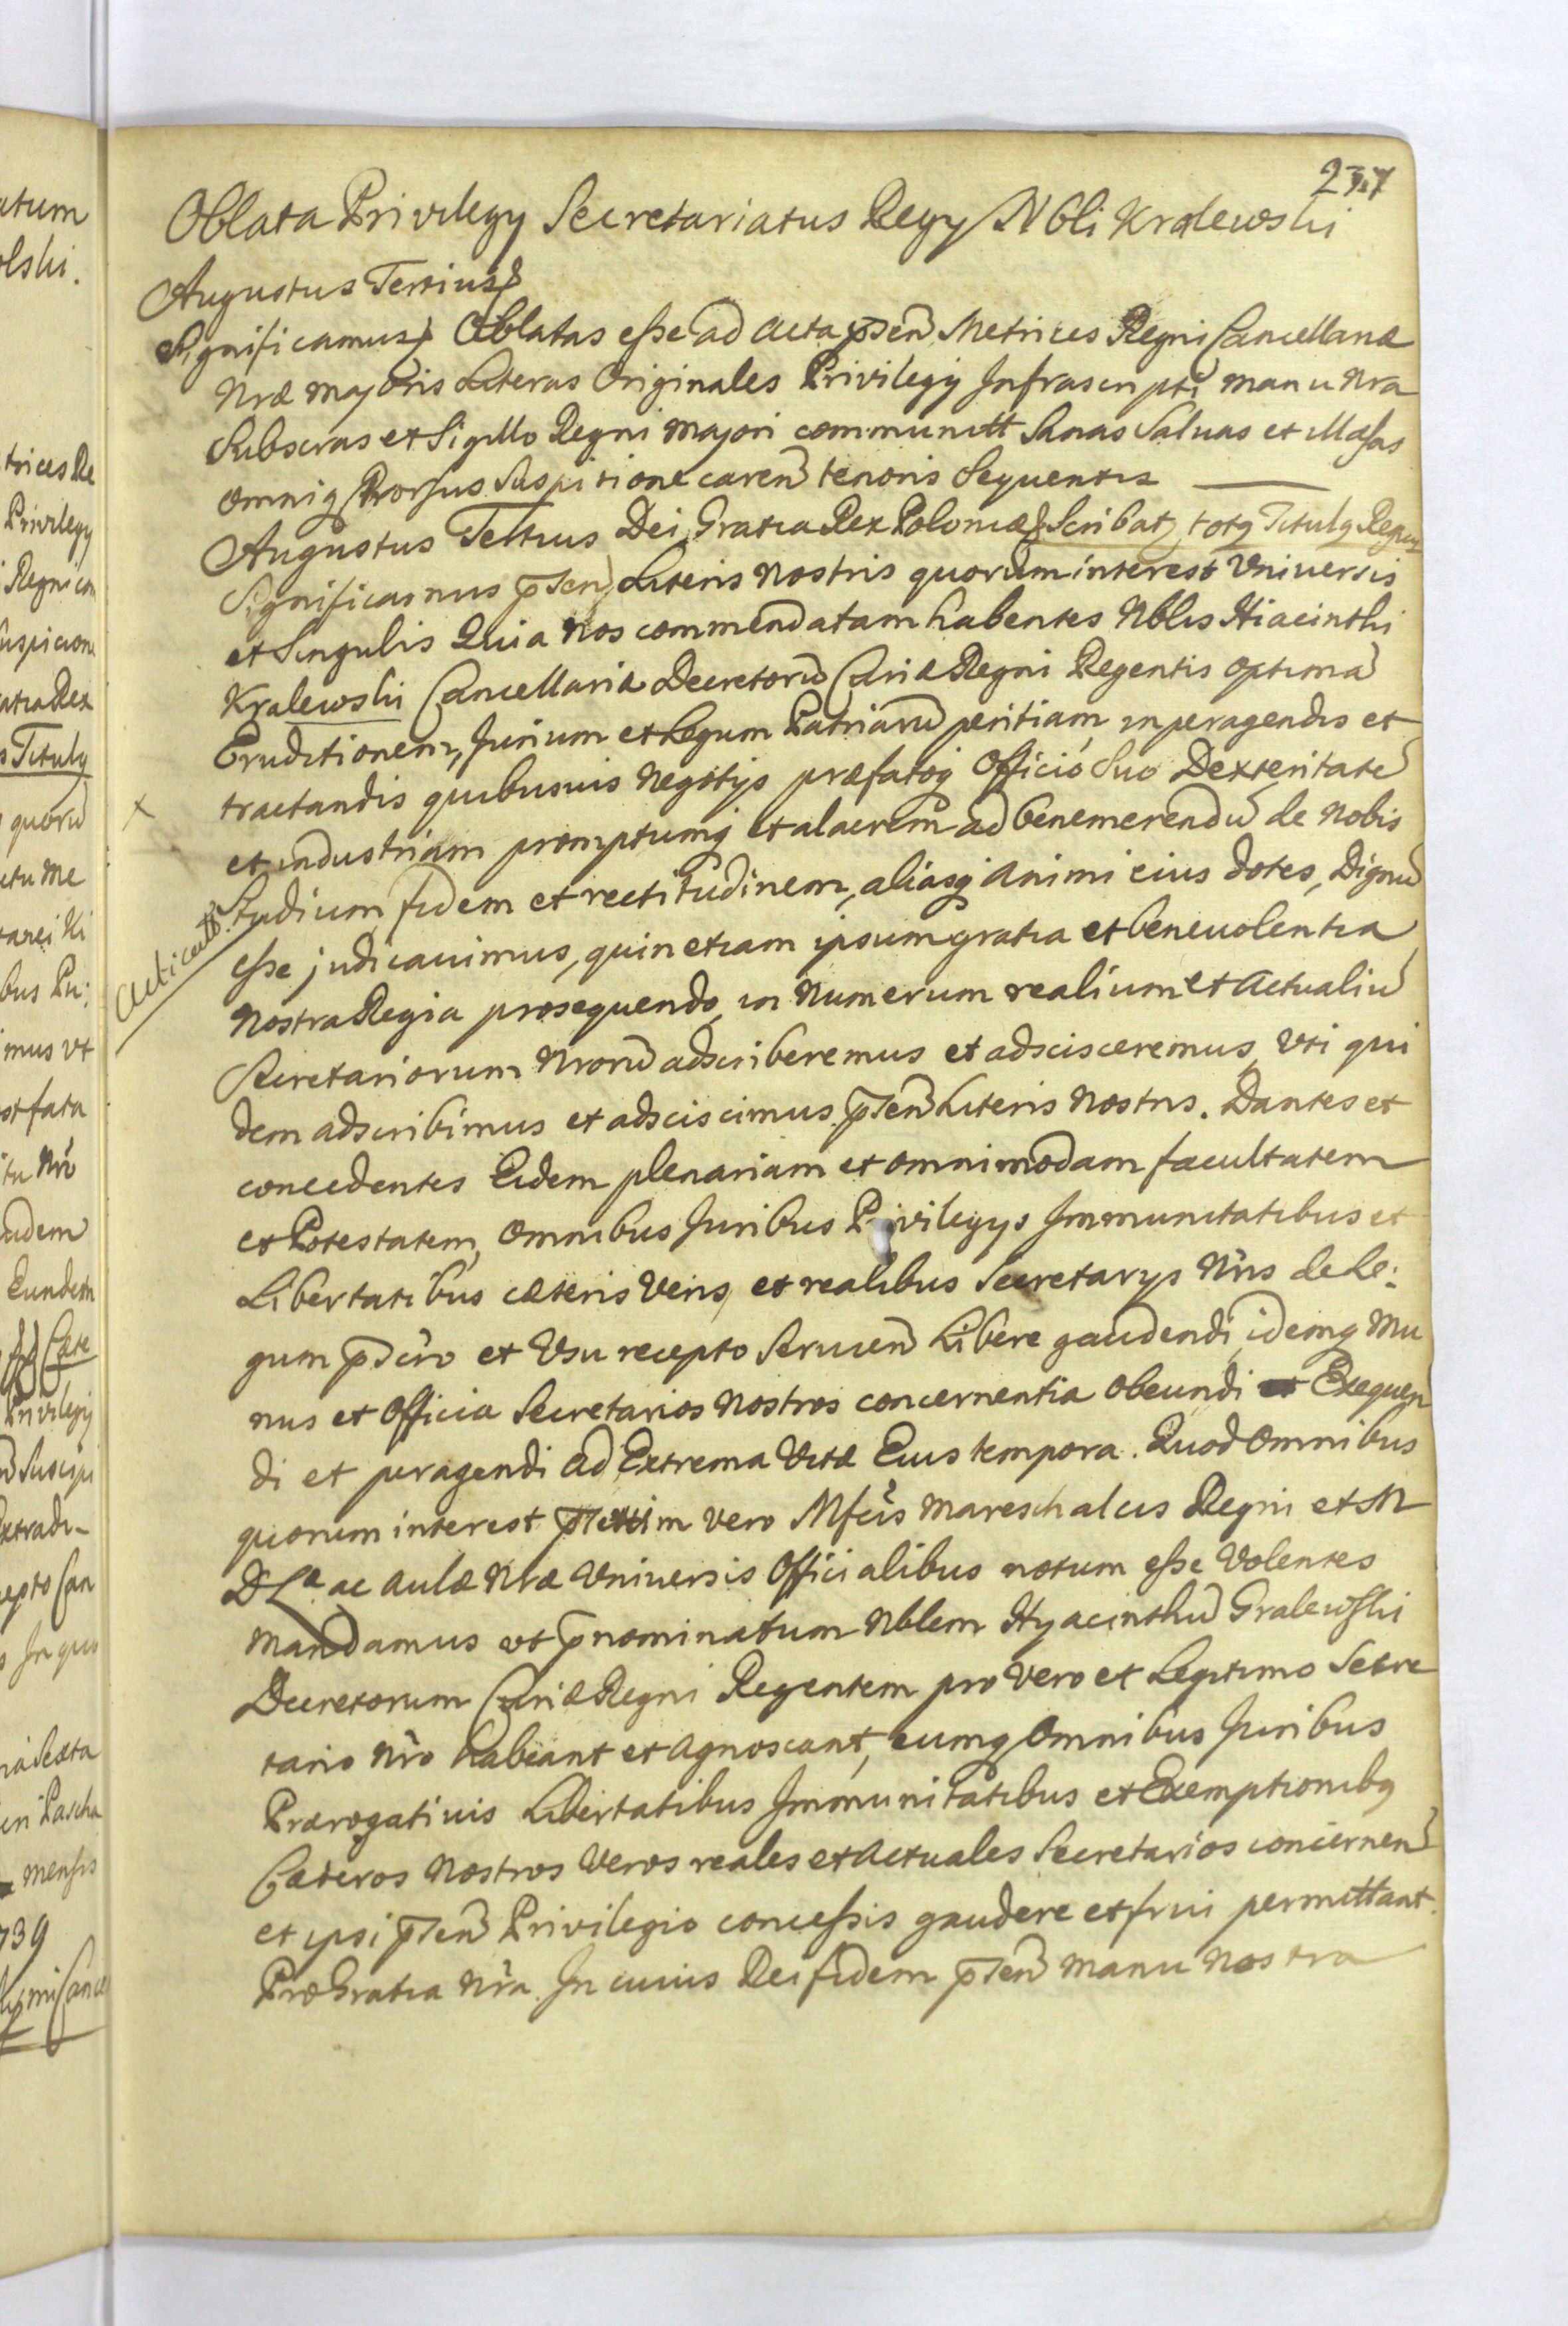 237
Oblata Privilegy Secretariatus Regy Nbli Kralewski
Augustus Tertius
Significamus Oblatas esse ad Acta pnsen Metrices Regni Cancellariæ
Nræ majoris Literas Originales Privilegij Infrascripti manu Nra
Subscras et Sigillo Regni majori communitt Sanas Saluas et illæsas
omniq Prorsus Suspitione caren tenoris Sequentis
Augustus Tertius Dei Gratia Rex Poloniæ Scribat totq Titulq Regius
Significamus psen Literis Nostris quorum interest Vniuersis
et Singulis Quia Nos commendatam habentes Nblis Hiacinthi
Kralewski Cancellariæ Decretorũ Cariæ Regni Regentis optimã
Eruditionem, Jurium et Legum Patriarũ peritiam in peragendis et
tractandis quibusuis Negotijs præfatoq Offició Suo Dexteritatẽ
et industriam promptumq et alacrem ad benemerendũ de Nobis
Studium fidem et rectitudinem, aliasq Animi eius dotes, Dignũ
esse judicauimus, quin etiam ipsum gratia et beneuolentia
Nostra Regia prosequendo, in Numerum realium et Actualiũ
Secretariorum Nrorũ adscriberemus et adscisceremus, Vti qui
dem adscribimus et adsciscimus psen Literis Nostris. Dantes et
concedentes Eidem plenariam et omnimodam facultatem
et Potestatem, Omnibus Juribus Privilegys Immunitatibus et
Libertatibus cæteris Veris, et realibus Secretarys Nris de Le:
gum pscro et Vsu recepto Seruien Libere gaudendi, idemq Mu
nus et Officia Secretarios Nostros concernentia obeundi Exequen
di et peragendi ad Extrema Vitæ Eius tempora. Quod Omnibus
quorum interest psertim vero Mfcis Mareschalcis Regni et M
D La ac Aulæ Nræ Vniuersis Officialibus notum esse Volentes
Mandamus vt pnominatum Nblem Hyacinthũ Gralewski
Decretorum Cariæ Regni Regentem pro Vero et Legitimo Secre
tario Nro habeant et Agnoscant, eumq Omnibus Juribus
Prærogatiuis Libertatibus Immunitatibus et Exemptionibq
Cæteros Nostros Veros reales et Actuales Secretarios concernen
et ipsi psen Privilegio concessis gaudere et frui permittant.
Pro Gratia Nra. In cuius Rei fidem psen manu Nostra